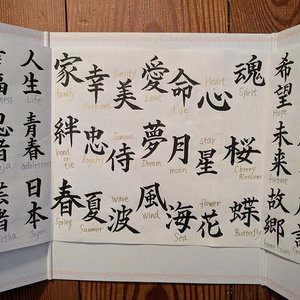 人生
Life
忍者
青春
芸者
日本
Japan
家
family
幸
Happiness
美
Beauty
愛
Love
命
Life
心
Heart
魂
Spirit
絆
bond or tie
忠
loyalty
侍
Samurai
夢
Dream
月
moon
星
star
桜
Cherry Blossom
春
Spring
夏
Summer
波
wave
風
Wind
海
Sea
花
flower
蝶
Butterfly
希望
Hope
未来
future
故郷
home town